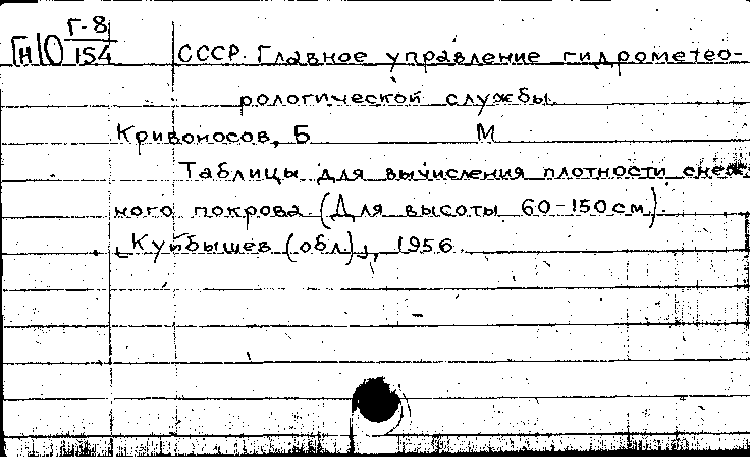 Г-8
[н]0 154 СССР. Главное управление гидрометео-
рологической службы.
Кривоносов, Б М
Таблицы для вычисления плотности снеж-
ного покрова (Для высоты 60-150 см).
[Куйбышев (обл.)], 1956.